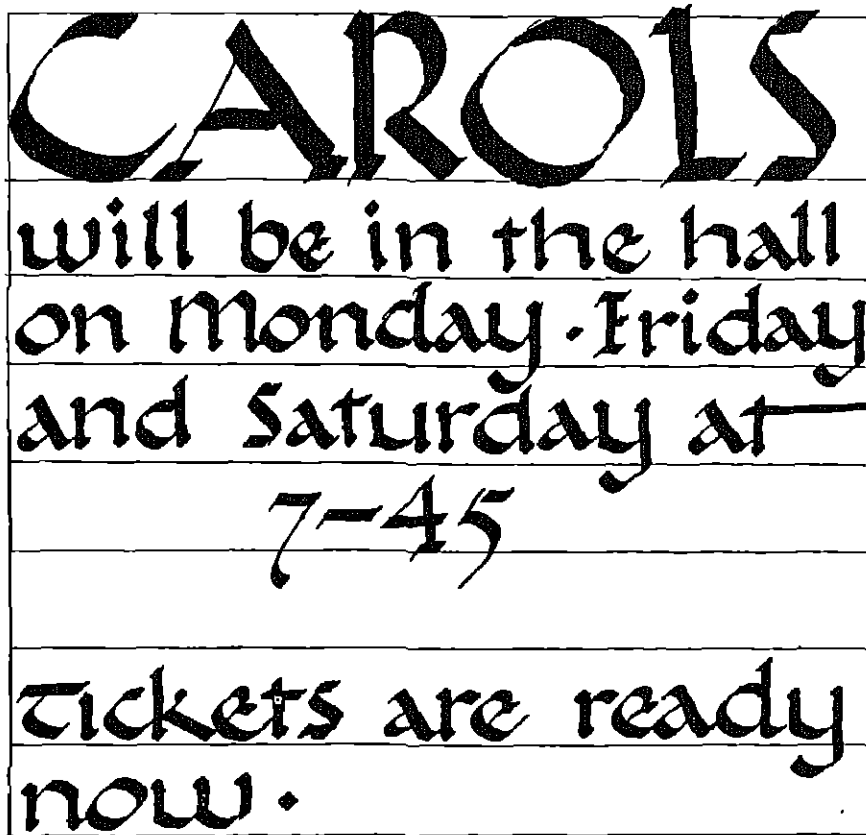 CAROLS
will be in the hall
on Monday. Friday
and Saturday at
7-45
Tickets are ready
now.